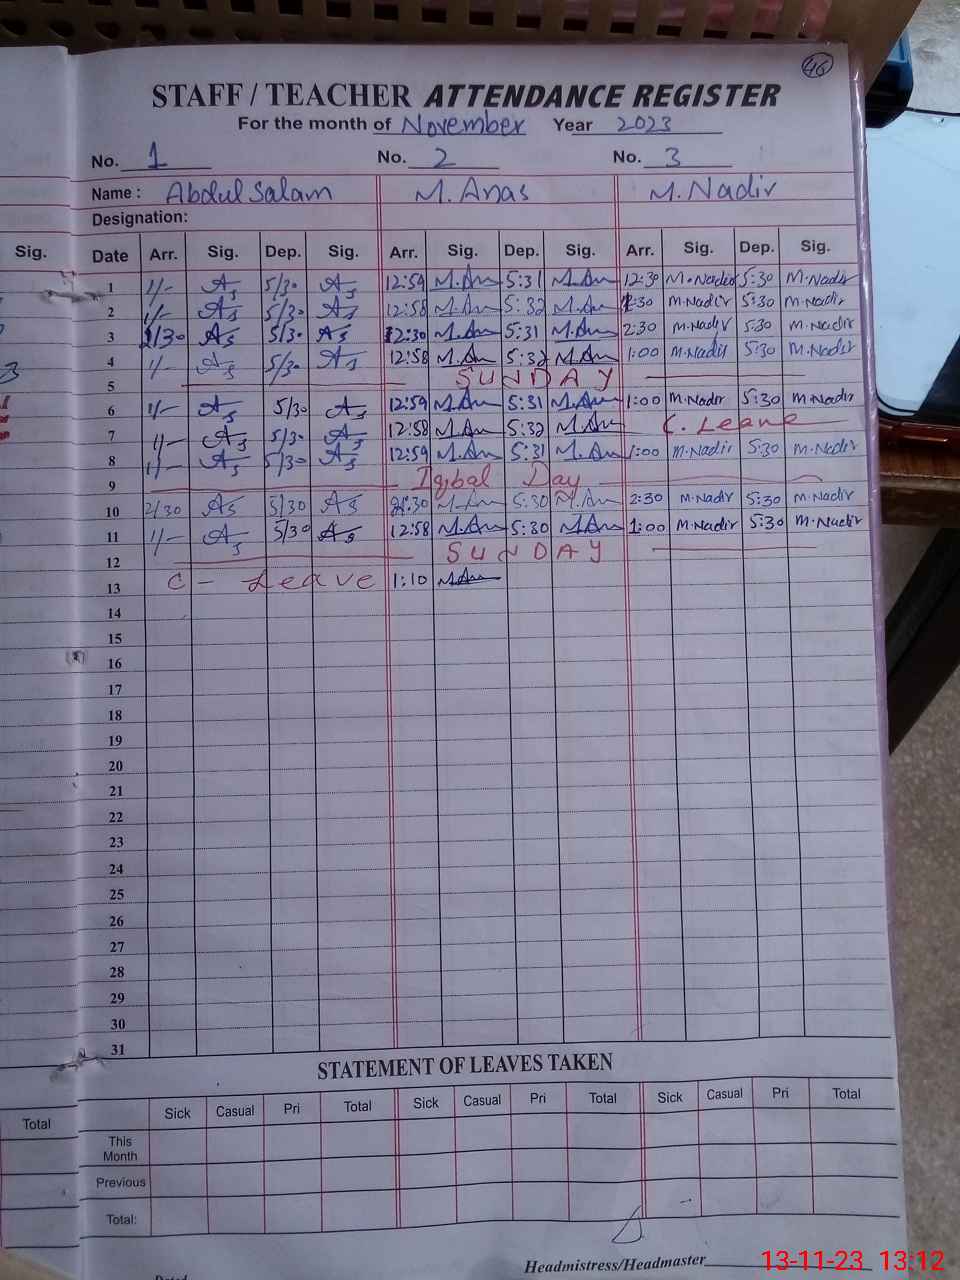 46
STAFF / TEACHER ATTENDANCE REGISTER
For the month of November Year 2023
No. 1 No. 2 No. 3
Name : Abdul Salam M. Anas M. Nadir
Designation:
Sig. Date Arr. Sig. Dep. Sig. Arr. Sig. Dep. Sig. Arr. Sig. Dep. Sig.
1 1/- As 5/30 As 12:59 M.An 5:31 M.An 12:30 M.Nadir 5:30 M.Nadir
2 1/- As 5/30 As 12:58 M.An 5:32 M.An 2:30 M.Nadir 5:30 M.Nadir
3 2/30 As 5/30 As 12:30 M.An 5:31 M.An 2:30 M.Nadir 5:30 M.Nadir
4 1/- As 5/30 As 12:58 M.An 5:32 M.An 1:00 M.Nadir 5:30 M.Nadir
5 SUNDAY
6 1/- As 5/30 As 12:59 M.An 5:31 M.An 1:00 M.Nadir 5:30 M.Nadir
7 1/- As 5/30 As 12:58 M.An 5:32 M.An C. Leave
8 1/- As 5/30 As 12:59 M.An 5:31 M.An 1:00 M.Nadir 5:30 M.Nadir
9 Iqbal Day
10 2/30 As 5/30 As 2:30 M.An 5:30 M.An 2:30 M.Nadir 5:30 M.Nadir
11 1/- As 5/30 As 12:58 M.An 5:30 M.An 1:00 M.Nadir 5:30 M.Nadir
12 SUNDAY
13 C - Leave 1:10 M.An
14
15
16
17
18
19
20
21
22
23
24
25
26
27
28
29
30
31
STATEMENT OF LEAVES TAKEN
Total Sick Casual Pri Total Sick Casual Pri Total Sick Casual Pri Total
This Month
Previous
Total:
Headmistress/Headmaster
13-11-23 13:12